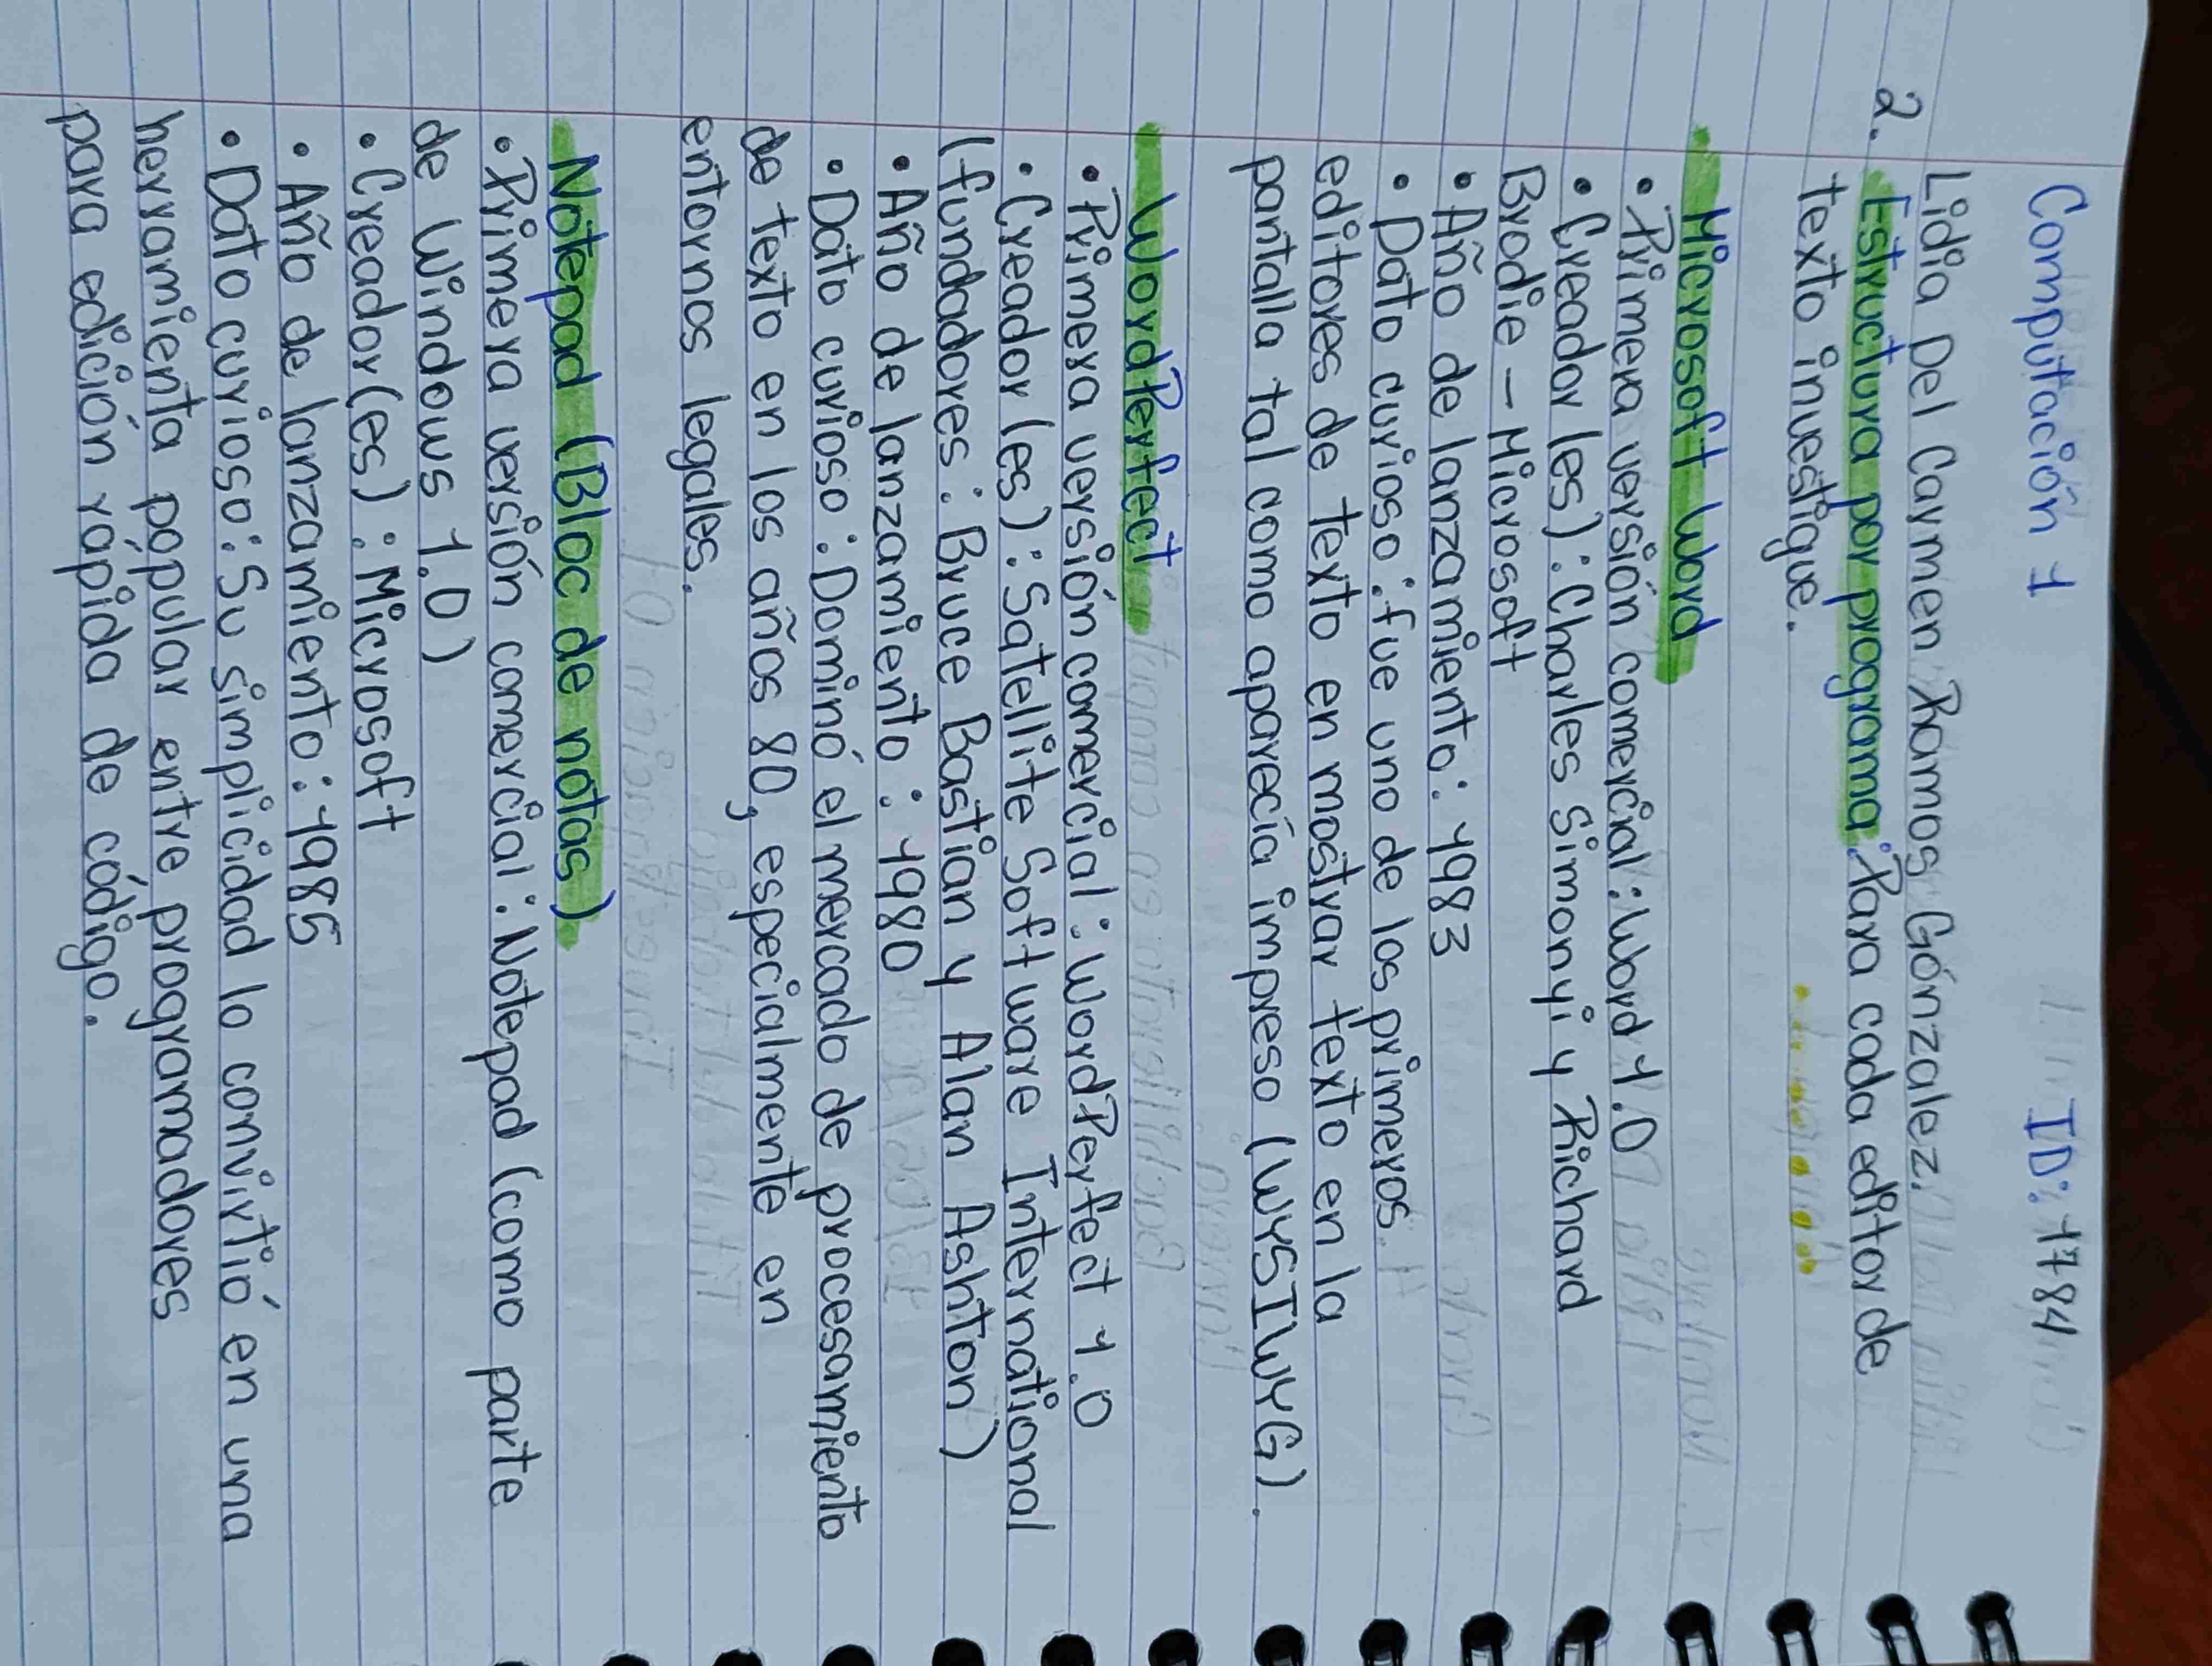 Computación 1 ID: 1784
Lidia Del Carmen Ramos Gónzalez.
2. Estructura por programa: Para cada editor de
texto investigue.
Microsoft Word
• Primera versión comercial: Word 1.0
• Creador (es): Charles Simonyi y Richard
Brodie - Microsoft
• Año de lanzamiento: 1983
• Dato curioso: fue uno de los primeros
editores de texto en mostrar texto en la
pantalla tal como aparecía impreso (WYSIWYG).
WordPerfect
• Primera versión comercial: WordPerfect 1.0
• Creador (es): Satellite Software International
(fundadores: Bruce Bastian y Alan Ashton)
• Año de lanzamiento: 1980
• Dato curioso: Dominó el mercado de procesamiento
de texto en los años 80, especialmente en
entornos legales.
Notepad (Bloc de notas)
• Primera versión comercial: Notepad (como parte
de Windows 1.0)
• Creador (es): Microsoft
• Año de lanzamiento: 1985
• Dato curioso: Su simplicidad lo convirtió en una
herramienta popular entre programadores
para edición rápida de código.